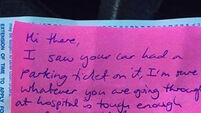 EXTENSION OF TIME TO APPLY FOR
Hi there,
I saw your car had a
parking ticket on it, I'm sure
whatever you are going through
at hospital is tough enough